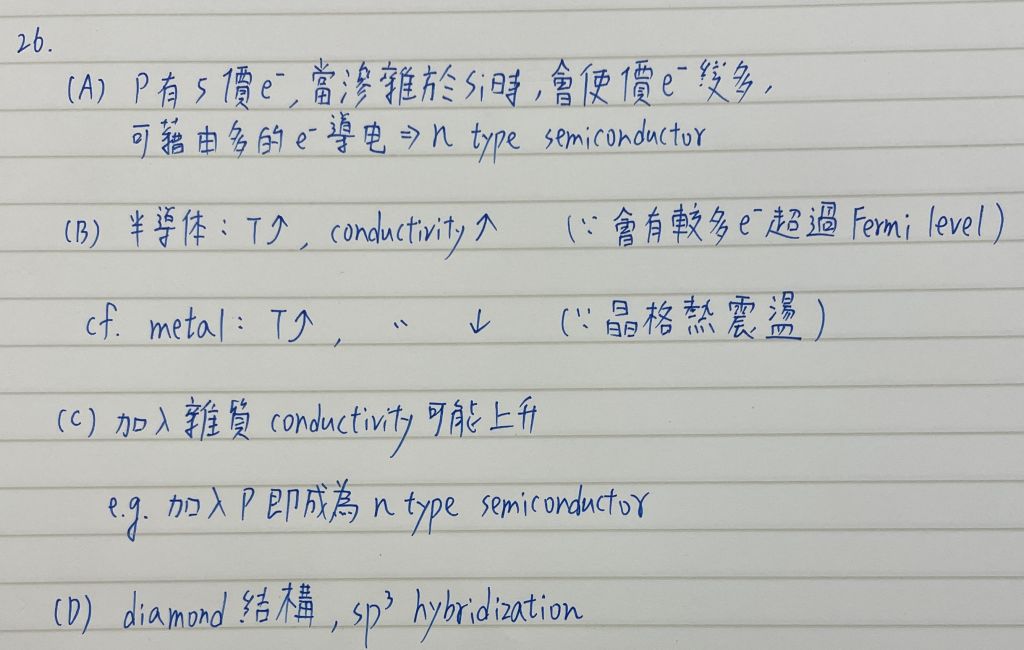 26.
(A) P有5價e⁻,當滲雜於Si時,會使價e⁻變多,
可藉由多的e⁻導电⇒n type semiconductor
(B) 半導体:T↑, conductivity↑ (∵會有較多e⁻超過Fermi level)
cf. metal:T↑, 〃 ↓ (∵晶格熱震盪)
(C) 加入雜質 conductivity 可能上升
e.g. 加入P即成為n type semiconductor
(D) diamond 結構, sp³ hybridization